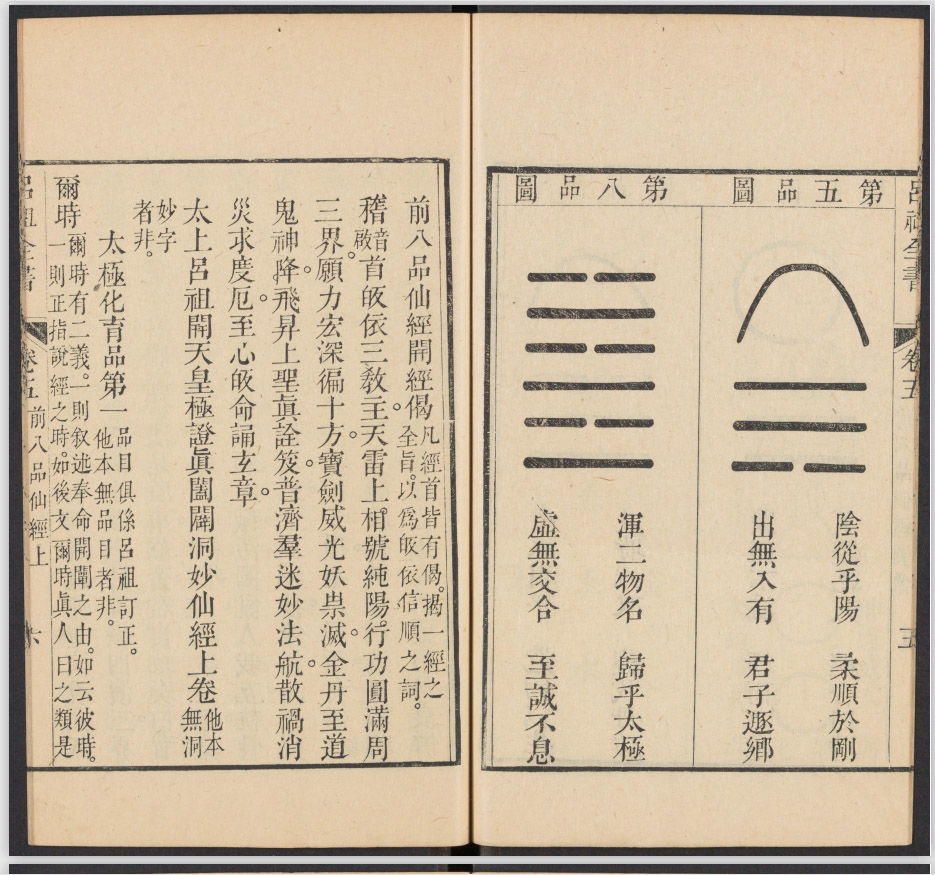 呂祖全書 卷五 五
第五品圖
陰從乎陽 柔順於剛
出無入有 君子遯鄉
第八品圖
渾二物名 歸乎太極
虛無交合 至誠不息
前八品仙經開經偈。凡經首皆有偈。揭一經之
全旨。以爲皈依信順之詞。
稽音啟首皈依三敎主。天雷上相號純陽。行功圓滿周
三界。願力宏深徧十方。寶劍威光妖祟滅。金丹至道
鬼神降。飛昇上聖眞詮笈。普濟羣迷妙法航。散禍消
災求度厄。至心皈命誦玄章。
太上呂祖開天皇極證眞闔闢洞妙仙經上卷他本
無洞
妙字
者非。
太極化育品第一品目俱係呂祖訂正。
他本無品目者非。
爾時爾時有二義。一則叙述奉命開闡之由。如云彼時。
一則正指說經之時。如後文爾時眞人曰之類是
呂祖全書 卷五 前八品仙經上 六